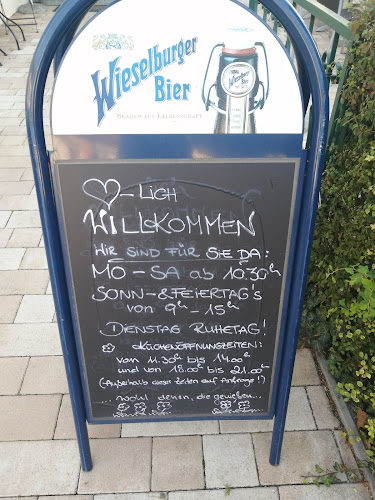 Wieselburger
Bier
BRAUEN AUS LEIDENSCHAFT.
♡-LICH
WILLKOMMEN
WIR SIND FÜR SIE DA:
MO - SA ab 10.30h
SONN-&FEIERTAG'S
von 9h - 15h
DIENSTAG RUHETAG!
KÜCHENÖFFNUNGZEITEN:
von 11.30h bis 14.00h
und von 18.00h bis 21.00h
(Außerhalb dieser Zeiten auf Anfrage!)
Wohl denen, die genießen...